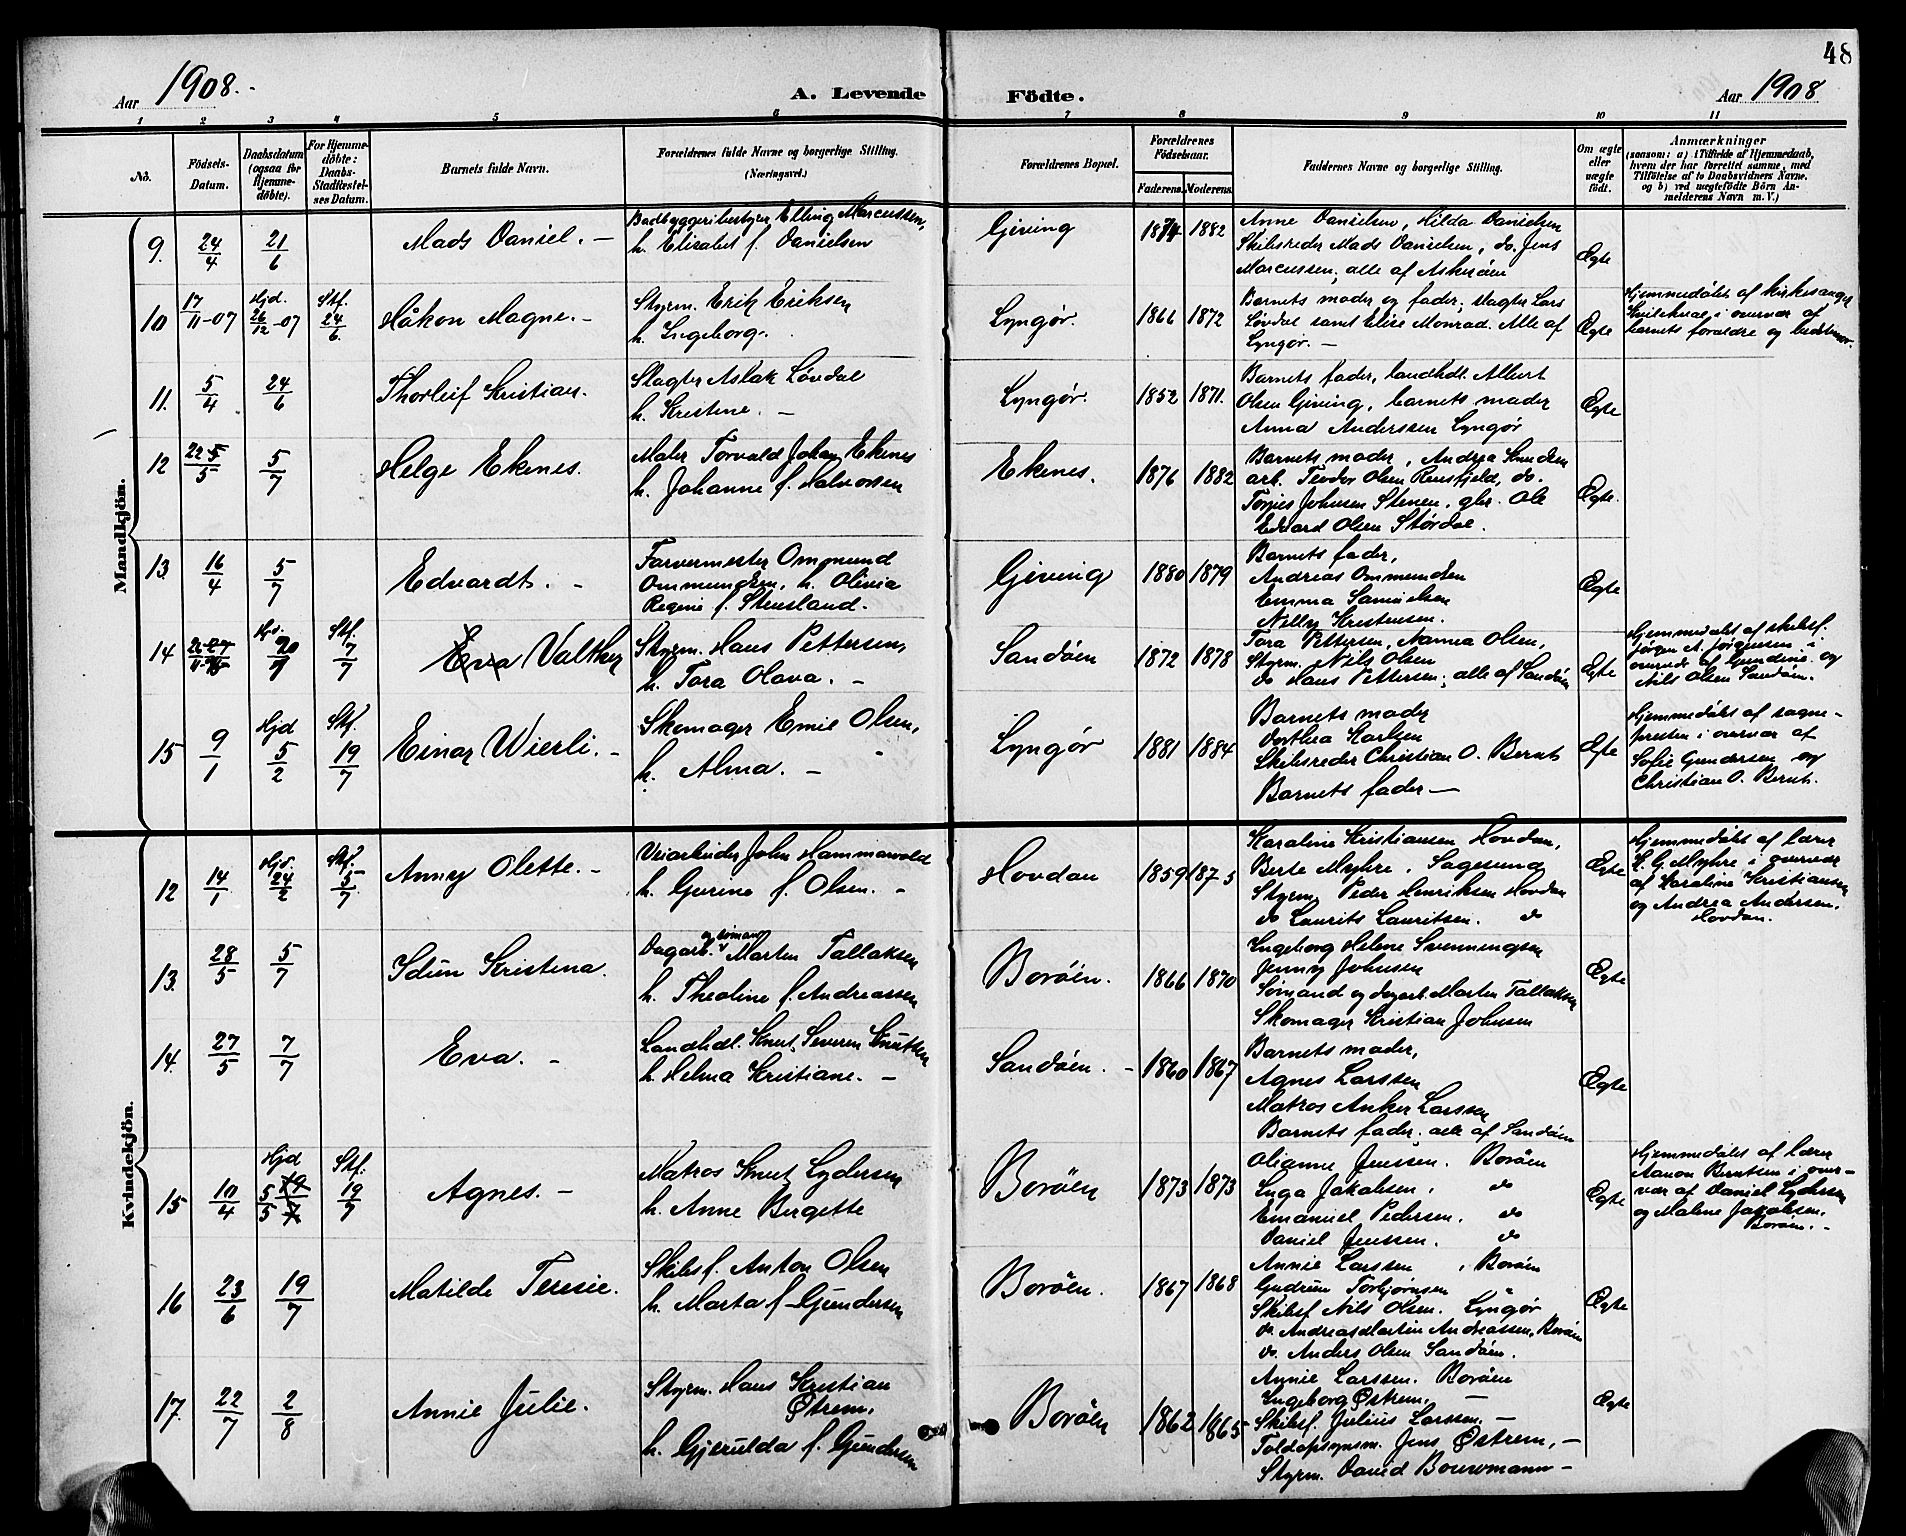 48
Aar 1908.
A. Levende Födte.
Aar 1908
1 2 3 4 5 6 7 8 9 10 11
No.
Födsels-
Datum.
Daabsdatum
(ogsaa for
Hjemme-
döbte).
For Hjemme-
döbte:
Daabs-
Stadfæstel-
ses Datum.
Barnets fulde Navn.
Forældrenes fulde Navne og borgerlige Stilling.
(Næringsvei.)
Forældrenes Bopæl.
Forældrenes
Födselsaar.
Faderens. Moderens.
Faddernes Navne og borgerlige Stilling.
Om ægte
eller
uægte
födt.
Anmærkninger
(saasom: a) i Tilfælde af Hjemmedaab,
hvem der har forrettet samme, med
Tilföielse af to Daabsvidners Navne.
og b) ved uægtefödte Börn An-
melderens Navn m. V.)
Mandkjön.
9. 24/4 21/6 Mads Daniel. –
Baadbyggeribestyrer Elling Marcussen,
h. Elisabet f. Danielsen
Gjeving 1874 1882
Anne Danielsen, Hilda Danielsen
Skibsreder Mads Danielsen, do. Jens
Marcussen, alle af Askerøen
Ægte
10 17/11-07 Hjd. 26/12-07 Stf. 24/6. Håkon Magne. –
Styrm. Erik Eriksen
h. Ingeborg.
Lyngør. 1866 1872
Barnets moder og fader, slagter Lars
Løvdal samt Elise Monrad. Alle af
Lyngør. –
Ægte
Hjemmedøbt af kirkesanger
i overvær af
barnets forældre og bedstemor.
11. 5/4 24/6 Thorleif Kristian.
Slagter Aslak Løvdal
h. Kristine. –
Lyngør. 1852 1871.
Barnets fader, landhdl. Albert
Olsen Gjeving, barnets moder
Anna Anderssen Lyngør
Ægte
12 22/5 5/7 Helge Ekenes.
Maler Torvald Johan Ekenes
h. Johanne f. Halvorsen
Ekenes. 1876 1882
Barnets moder, Andrea Knudsen
arb. Teodor Olsen Rensfjeld, do.
Torjus Johnsen Stenen, gbr. Ole
Edvard Olsen Størdal.
Ægte.
13. 16/4 5/7 Edvardt. –
Farvermester Ommund
Ommundsen, h. Olivia
Regine f. Stensland.
Gjeving 1880 1879
Barnets fader,
Andreas Ommundsen
Emma Samuelsen
Nilly Kristensen.
Ægte
14 Hjd. 20/7 Stf. 7/7 Eva Valther
Styrm. Hans Pettersen,
h. Tora Olava. –
Sandøen 1872 1878
Tora Pettersen, Nanna Olsen,
Styrm. Nils Olsen
do Hans Pettersen, alle af Sandøen
Ægte
Hjemmedøbt af skibsf.
Jørgen A. Jørgensen i
overvær af Gundine og
Nils Olsen Sandøen.
15 9/1 Hjd 5/2 Stf. 19/7 Einar Wierli. –
Skomager Emil Olsen,
h. Alma. –
Lyngør 1881 1884
Barnets moder
Dorthea Karlsen
Skibsreder Christian O. Bernts
Barnets fader –
Ægte
Hjemmedøbt af sogne-
presten i overvær af
Sofie Gundersen og
Christian O. Bernts.
Kvindekjön.
12 14/1 Hjd. 24/2 Stf. 5/7 Anny Olette. –
Veiarbeider John Hammarvold
h. Gurine f. Olsen. –
Hovdan 1859 1875
Karoline Kristiansen Hovdan,
Berte Myhre, Sagesund
Styrm. Peder Henriksen Hovdan
do Laurits Lauritsen. do
Ægte
Hjemmedøbt af lærer
K. G. Myhre i overvær
af Karoline Kristiansen
og Andrea Andersen,
Hovdan.
13. 28/5 5/7 Idun Kristina.
Dagarb. og sømand Marten Tallaksen
h. Theoline f. Andreassen
Borøen. 1866 1870
Ingeborg Helene Svenningsen
Jenny Johnsen
Sømand og dagarb. Marten Tallaksen
Skomager Kristian Johnsen
Ægte
14. 27/5 7/7 Eva. –
Landhdl. Knut Severin Knutsen
h. Helma Kristiane. –
Sandøen. – 1860 1867
Barnets moder,
Agnes Larssen
Matros Anker Larssen
Barnets fader, alle af Sandøen
Ægte
15 10/4 Hjd 5/5 19/7 Stf. 19/7 Agnes. –
Matros Knut Lydersen
h. Anne Bergette
Borøen 1873 1873
Olianne Jenssen. Borøen
Inga Jakobsen, do
Emanuel Pedersen. do
Daniel Jenssen. do
Ægte
Hjemmedøbt af lærer
Aanon Berntsen i over-
vær af Daniel Lydersen
og Malene Jakobsen,
Borøen. –
16 23/6 19/7 Matilde Teresie.
Skibsf. Anton Olsen
h. Marta f. Gundersen
Borøen. 1867 1868
Annie Larssen, Borøen
Gudrun Torbjørnsen "
Skibsf Nils Olsen. Lyngør
do. Andreas Martin Andreassen, Borøen
do. Anders Olsen Sandøen.
Ægte
17. 22/7 2/8 Annie Julie.
Styrm. Hans Kristian
Østrem,
h. Gjerulda f. Gundersen
Borøen 1862 1865
Annie Larssen. Borøen
Ingeborg Østrem, –
Skibsf. Julius Larssen. –
Toldopsynsm. Jens Østrem, –
Styrm. David Bouwmann –
Ægte